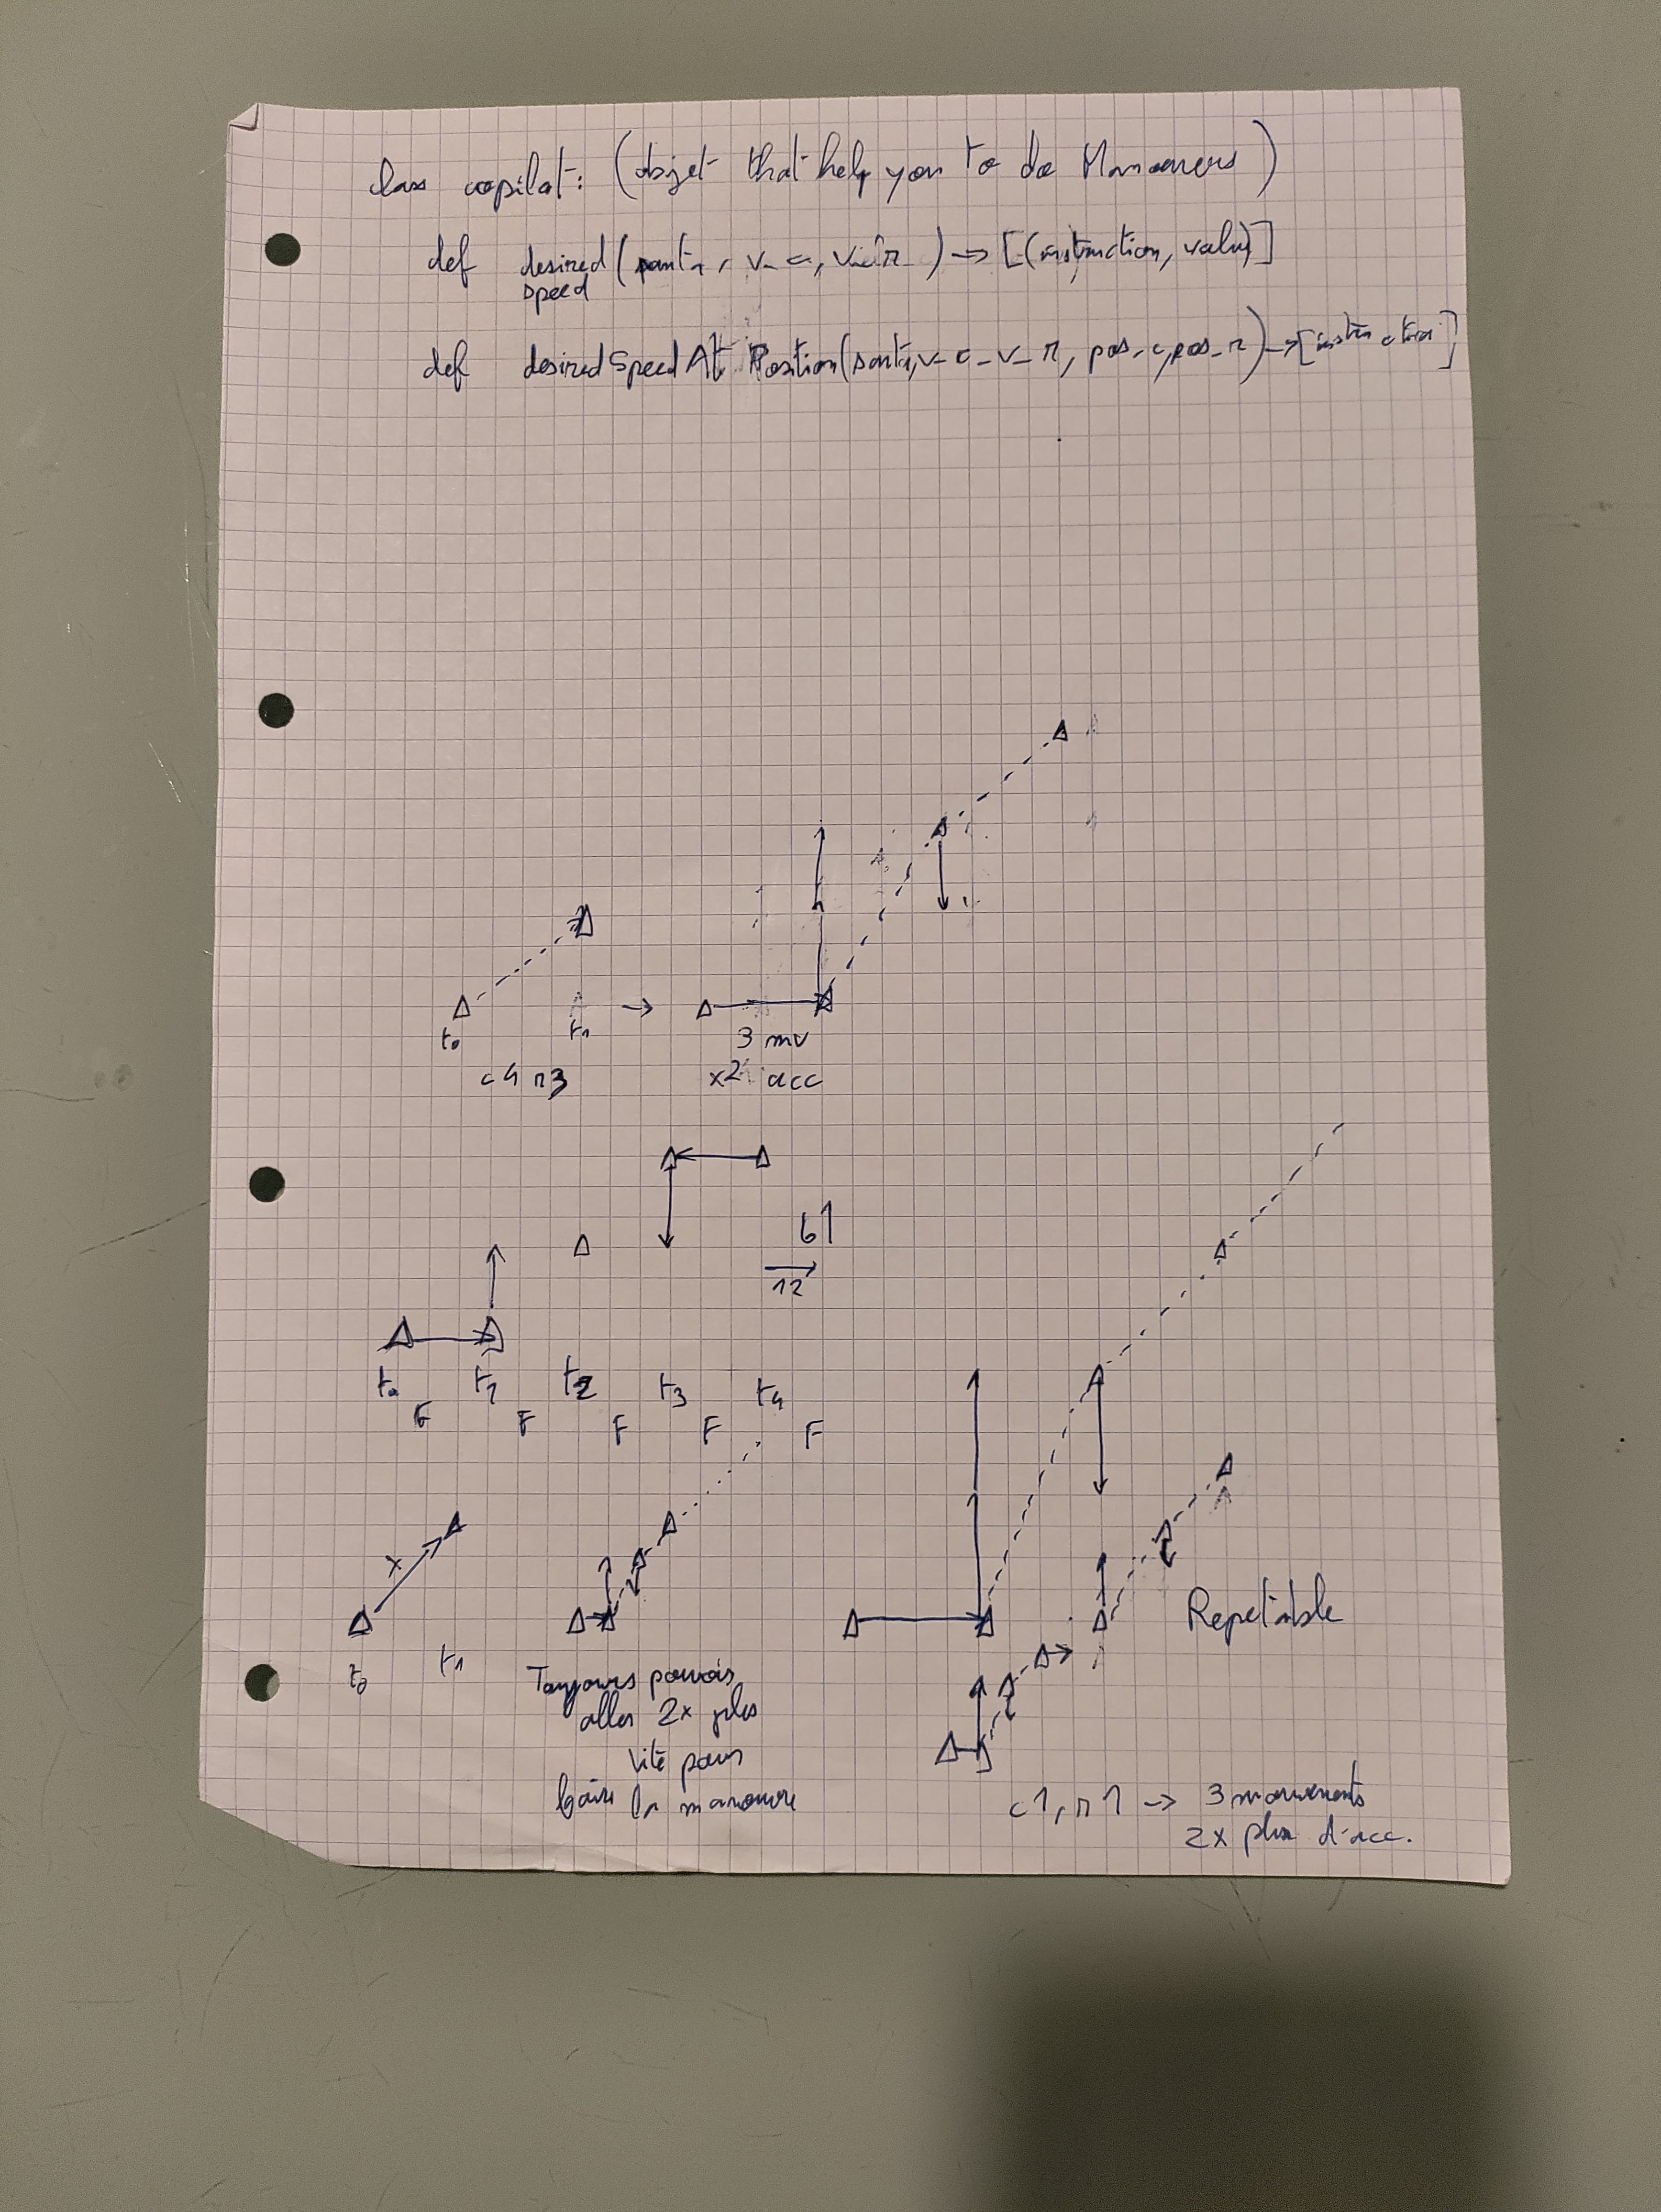 class copilot: (objet that help you to do Manoeuvers)
def desired speed (santa, v_c, v_r) → [(instruction, value)]
def desiredSpeedAtPosition(santa, v_c_v_r, pos_c, pos_r) → [instruction]
t0 t1 →
c4 r3
3 mv
x2 acc
6
12
t0 t1 t2 t3 t4
F F F F
x
t0 t1
Toujours pouvoir
aller 2x plus
vite pour
faire la manoeuvre
Repetable
c1, r1 → 3 mouvements
2x plus d'acc.